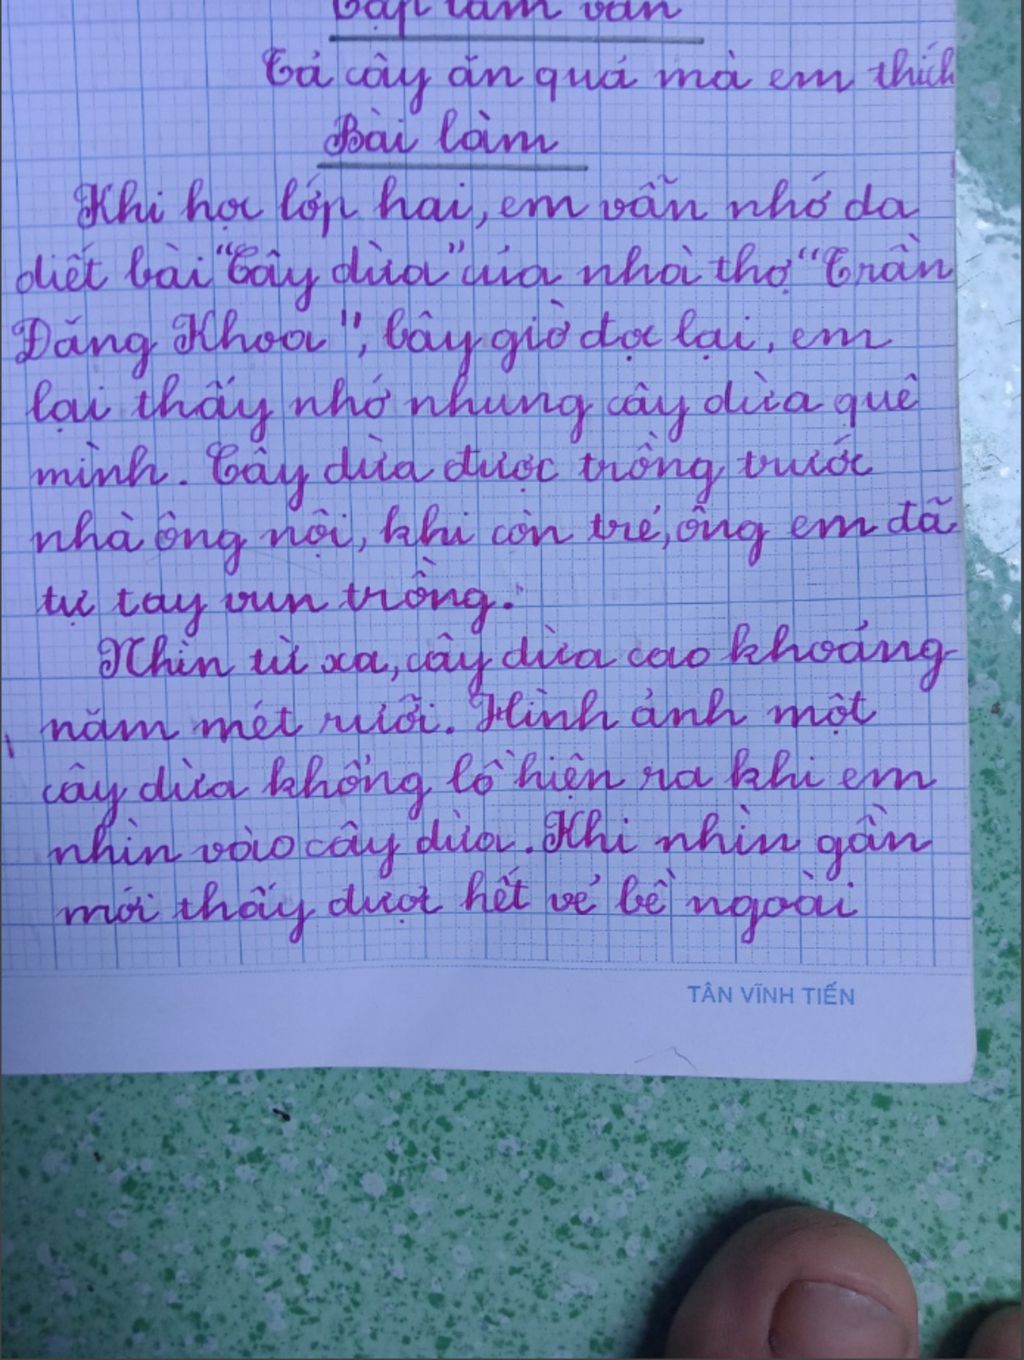 Tập làm văn
Tả cây ăn quả mà em thích
Bài làm
Khi học lớp hai, em vẫn nhớ da
diết bài "Cây dừa" của nhà thơ "Trần
Đăng Khoa", bây giờ đọc lại, em
lại thấy nhớ nhung cây dừa quê
mình. Cây dừa được trồng trước
nhà ông nội, khi còn trẻ, ông em đã
tự tay vun trồng.
Nhìn từ xa, cây dừa cao khoảng
năm mét rưỡi. Hình ảnh một
cây dừa khổng lồ hiện ra khi em
nhìn vào cây dừa. Khi nhìn gần
mới thấy được hết vẻ bề ngoài
TÂN VĨNH TIẾN